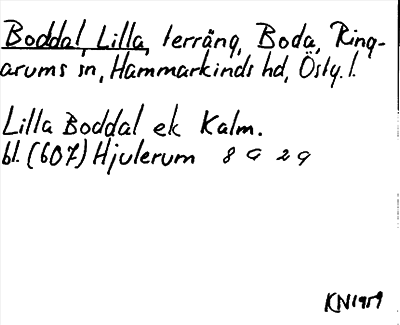 Boddal, Lilla, terräng, Boda, Ring-
arums sn, Hammarkinds hd, Östg. l.
Lilla Boddal ek Kalm.
bl. (607) Hjulerum 8 G 2 g
KN 1959